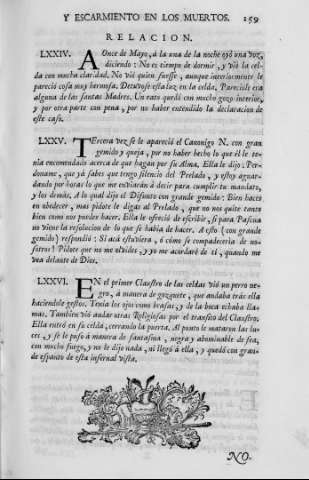 Y ESCARMIENTO EN LOS MUERTOS. 259
RELACION.
LXXIV. A Once de Mayo, à la una de la noche oyò una voz,
diciendo: No es tiempo de dormir, y viò la cel-
da con mucha claridad. No viò quien fuesse, aunque interiormente le
pareciò cosa muy hermosa. Detuvose esta luz en la celda. Pareciòle era
alguna de las santas Madres. Un rato quedò con mucho gozo interior,
y por otra parte con pena, por no haber entendido la declaracion de
este caso.
LXXV. TErcera vez se le apareciò el Canonigo N. con gran
gemido y queja, por no haber hecho lo que èl le te-
nia encomendado acerca de que hagan por su Alma. Ella le dijo: Per-
doname, que yà sabes que tengo silencio del Prelado, y estoy aguar-
dando por horas lo que me embiaràn à decir para cumplir tu mandato,
y los demàs. A lo qual dijo el Difunto con grande gemido: Bien haces
en obedecer, mas pidote le digas al Prelado, que no nos quite tanto
bien como nos puedes hacer. Ella le ofreciò de escribir, si para Pascua
no viene la resolucion de lo que se habia de hacer. A esto (con grande
gemido) respondiò: Si acà estuviera, ò còmo se compadeceria de no-
sotros! Pidote que no me olvides, y yo me acordarè de ti, quando me
vea delante de Dios.
LXXVI. EN el primer Claustro de las celdas viò un perro ne-
gro, à manera de gozquete, que andaba tràs ella
haciendole gestos. Tenia los ojos como brasas, y de la boca echaba lla-
mas. Tambien viò andar otras Religiosas por el transito del Claustro.
Ella entrò en su celda, cerrando la puerta. Al punto le mataron las lu-
ces, y se le puso à manera de fantasma, negra y abominable de fea,
con mucho fuego, y no le dijo nada, ni llegò à ella, y quedò con gran-
de espanto de esta infernal vista.
NO-